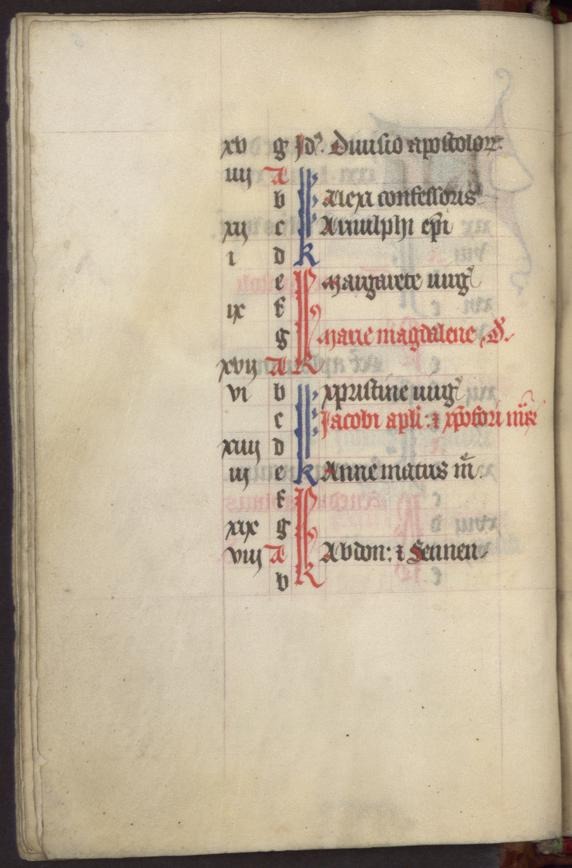 xv g Id9. Diuisio apostolorꝝ.
iiij A
b Alexi confessoris
xij c Arnulphi epi
i d k
e Margarete uirg
ix f
g Marie magdalene, d.
xvij A k
vi b xpristine uirg
c Jacobi apli: ⁊ xpofori mr̃e
xiiij d
iij e k Anne matris m̃
f
xix g
viij A Abdon: ⁊ Sennen
b k